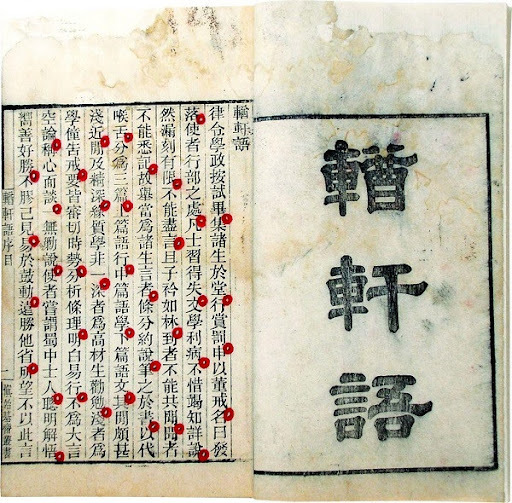 輶軒語
輶軒語
律令學政按試畢集諸生於堂行賞罰申以董戒名曰發
落使者行部之處凡士習得失文學利病不惜竭知詳說
然漏刻有限不能盡言且子衿如林到者不能共聞聞者
不能悉記故舉當爲諸生言者條分約說筆之於書以代
喉舌分爲三篇上篇語行中篇語學下篇語文其閒頗甚
淺近閒及精深緣質學非一深者爲高材生勸勉淺者爲
學僮告戒要皆審切時勢分析條理明白易行不爲大言
空論稱心而談一無勦說使者嘗謂蜀中士人聰明解悟
嚮善好勝不膠己見易於鼓動遠勝他省所望不以此言
輶軒語序目 一